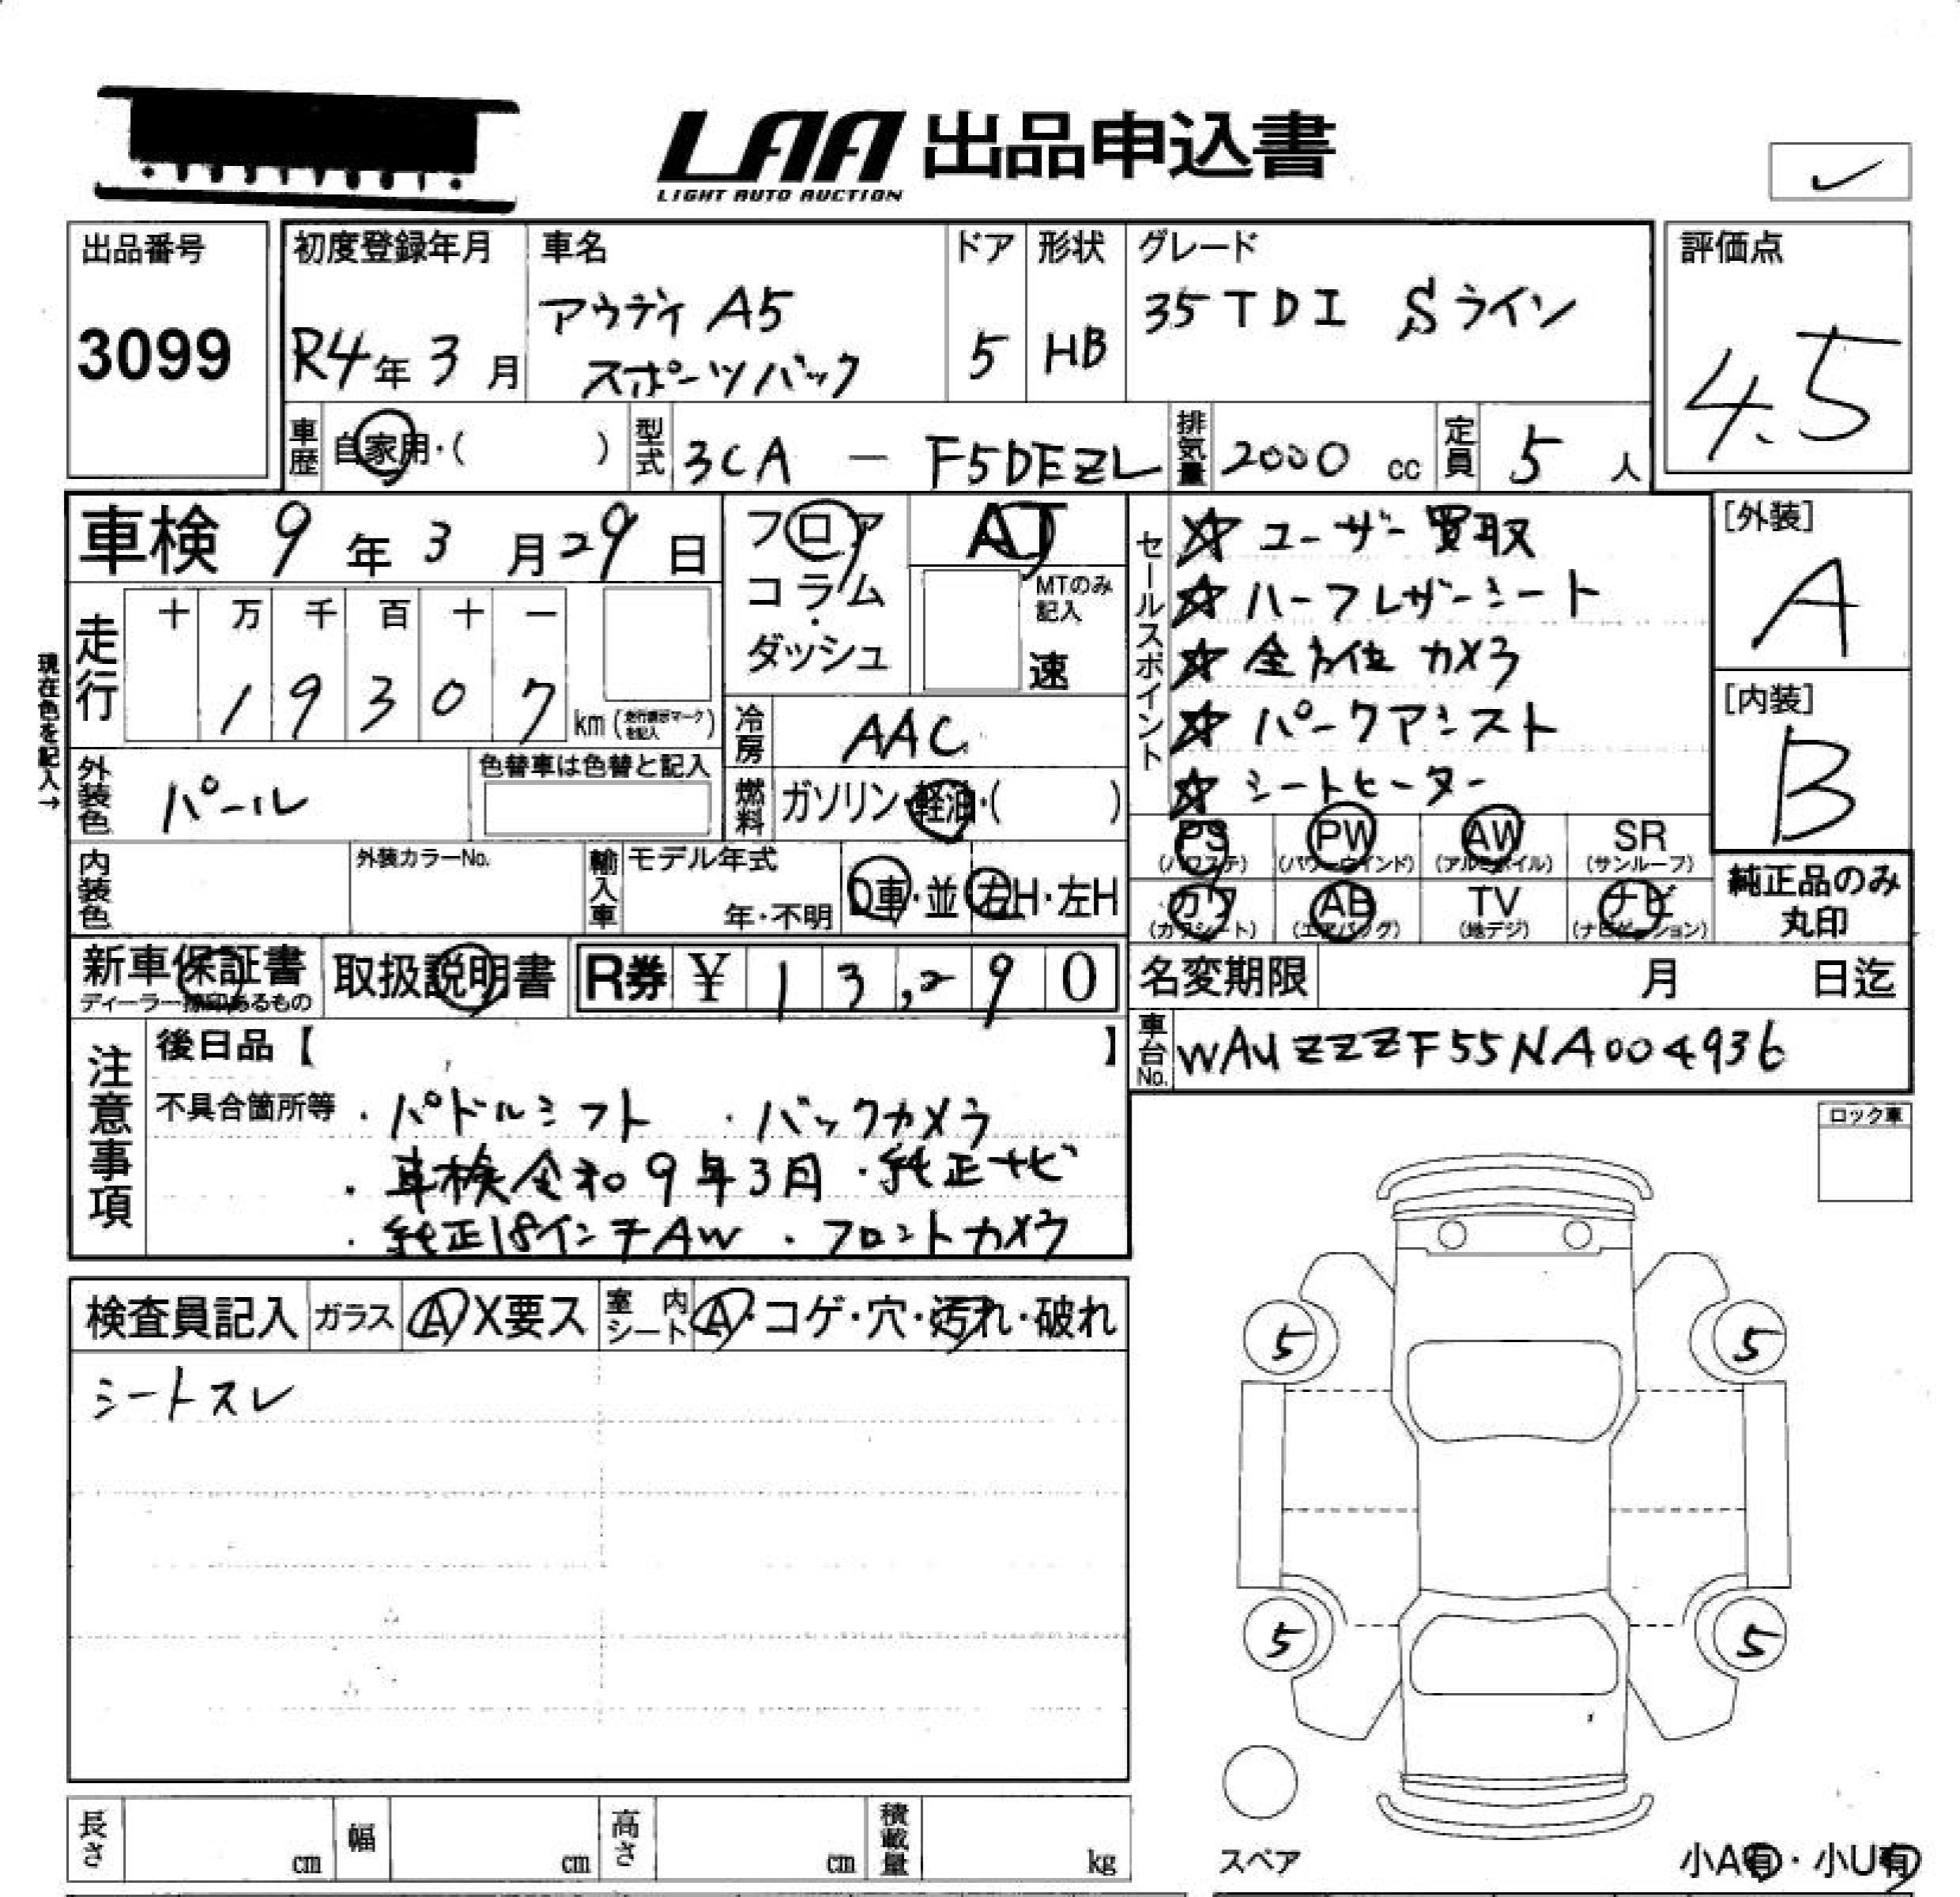 LAA 出品申込書
LIGHT AUTO AUCTION
出品番号
3099
初度登録年月
R4年3月
車名
アウディ A5
スポーツバック
ドア
5
形状
HB
グレード
35TDI Sライン
評価点
4.5
車歴 自家用・( )
型式 3CA － F5DEZL
排気量 2000 cc
定員 5 人
車検 9年3月29日
フロア
コラム
・
ダッシュ
AT
MTのみ
記入
速
セールスポイント
☆ユーザー買取
☆ハーフレザーシート
☆全方位カメラ
☆パークアシスト
☆シートヒーター
[外装]
A
[内装]
B
現在色を記入→
走行
十 万 千 百 十 一
1 9 3 0 7
km
冷房 AAC
外装色 パール
色替車は色替と記入
燃料 ガソリン・軽油・( )
PS (パワステ)
PW (パワーウインド)
AW (アルミホイル)
SR (サンルーフ)
カワ (カワシート)
AB (エアバッグ)
TV (地デジ)
ナビ (ナビゲーション)
純正品のみ
丸印
内装色
外装カラーNo.
輸入車
モデル年式
年・不明
D車・並
右H・左H
新車保証書
取扱説明書
R券 ¥ 13,290
名変期限 月 日迄
車台No. WAUZZZF55NA004936
注意事項
後日品【 】
不具合箇所等 ・パドルシフト ・バックカメラ
・車検令和9年3月 ・純正ナビ
・純正18インチAW ・フロントカメラ
ロック車
検査員記入
ガラス A X要ス
室内シート A・コゲ・穴・汚れ・破れ
シートスレ
5 5
5 5
スペア
小A有・小U有
長さ cm
幅 cm
高さ cm
積載量 kg